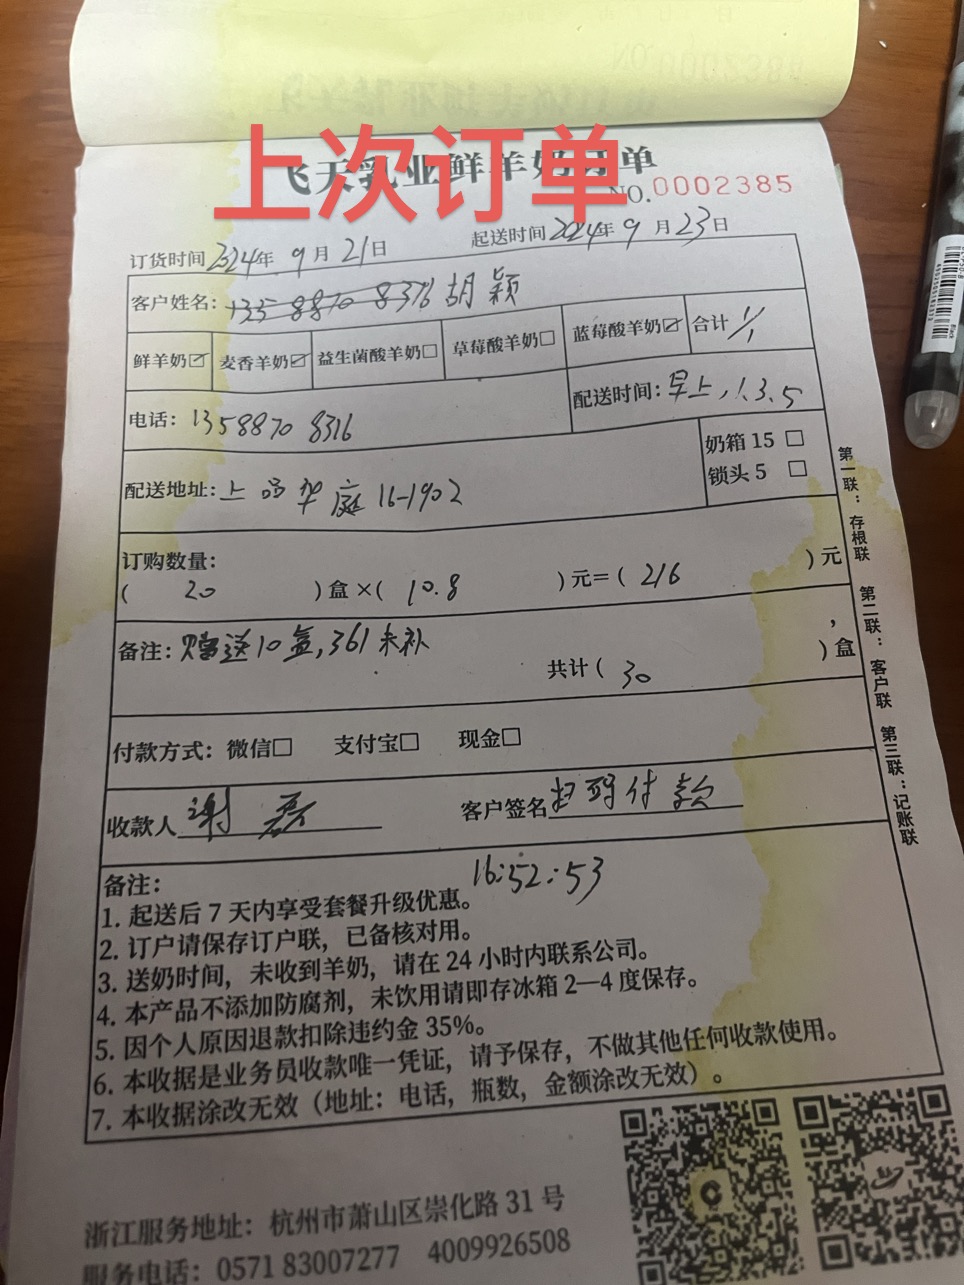 上次订单
飞天乳业鲜羊奶订单
NO.0002385
订货时间2024年9月21日 起送时间2024年9月23日
客户姓名：13588708376 胡颖
鲜羊奶☑ 麦香羊奶☑ 益生菌酸羊奶□ 草莓酸羊奶□ 蓝莓酸羊奶☑ 合计 1/1
电话：13588708316 配送时间：早上，1.3.5
配送地址：上品华庭16-1902 奶箱 15 □
锁头 5 □
订购数量：
( 20 ) 盒 ×( 10.8 ) 元＝( 216 ) 元
备注：赠送10盒，361未补 ，
共计 ( 30 ) 盒
付款方式：微信□ 支付宝□ 现金□
收款人谢磊 客户签名扫码付款
16:52:53
备注：
1. 起送后 7 天内享受套餐升级优惠。
2. 订户请保存订户联，已备核对用。
3. 送奶时间，未收到羊奶，请在 24 小时内联系公司。
4. 本产品不添加防腐剂，未饮用请即存冰箱 2—4 度保存。
5. 因个人原因退款扣除违约金 35%。
6. 本收据是业务员收款唯一凭证，请予保存，不做其他任何收款使用。
7. 本收据涂改无效（地址：电话，瓶数，金额涂改无效）。
第一联：存根联 第二联：客户联 第三联：记账联
浙江服务地址：杭州市萧山区崇化路 31 号
服务电话：0571 83007277 4009926508